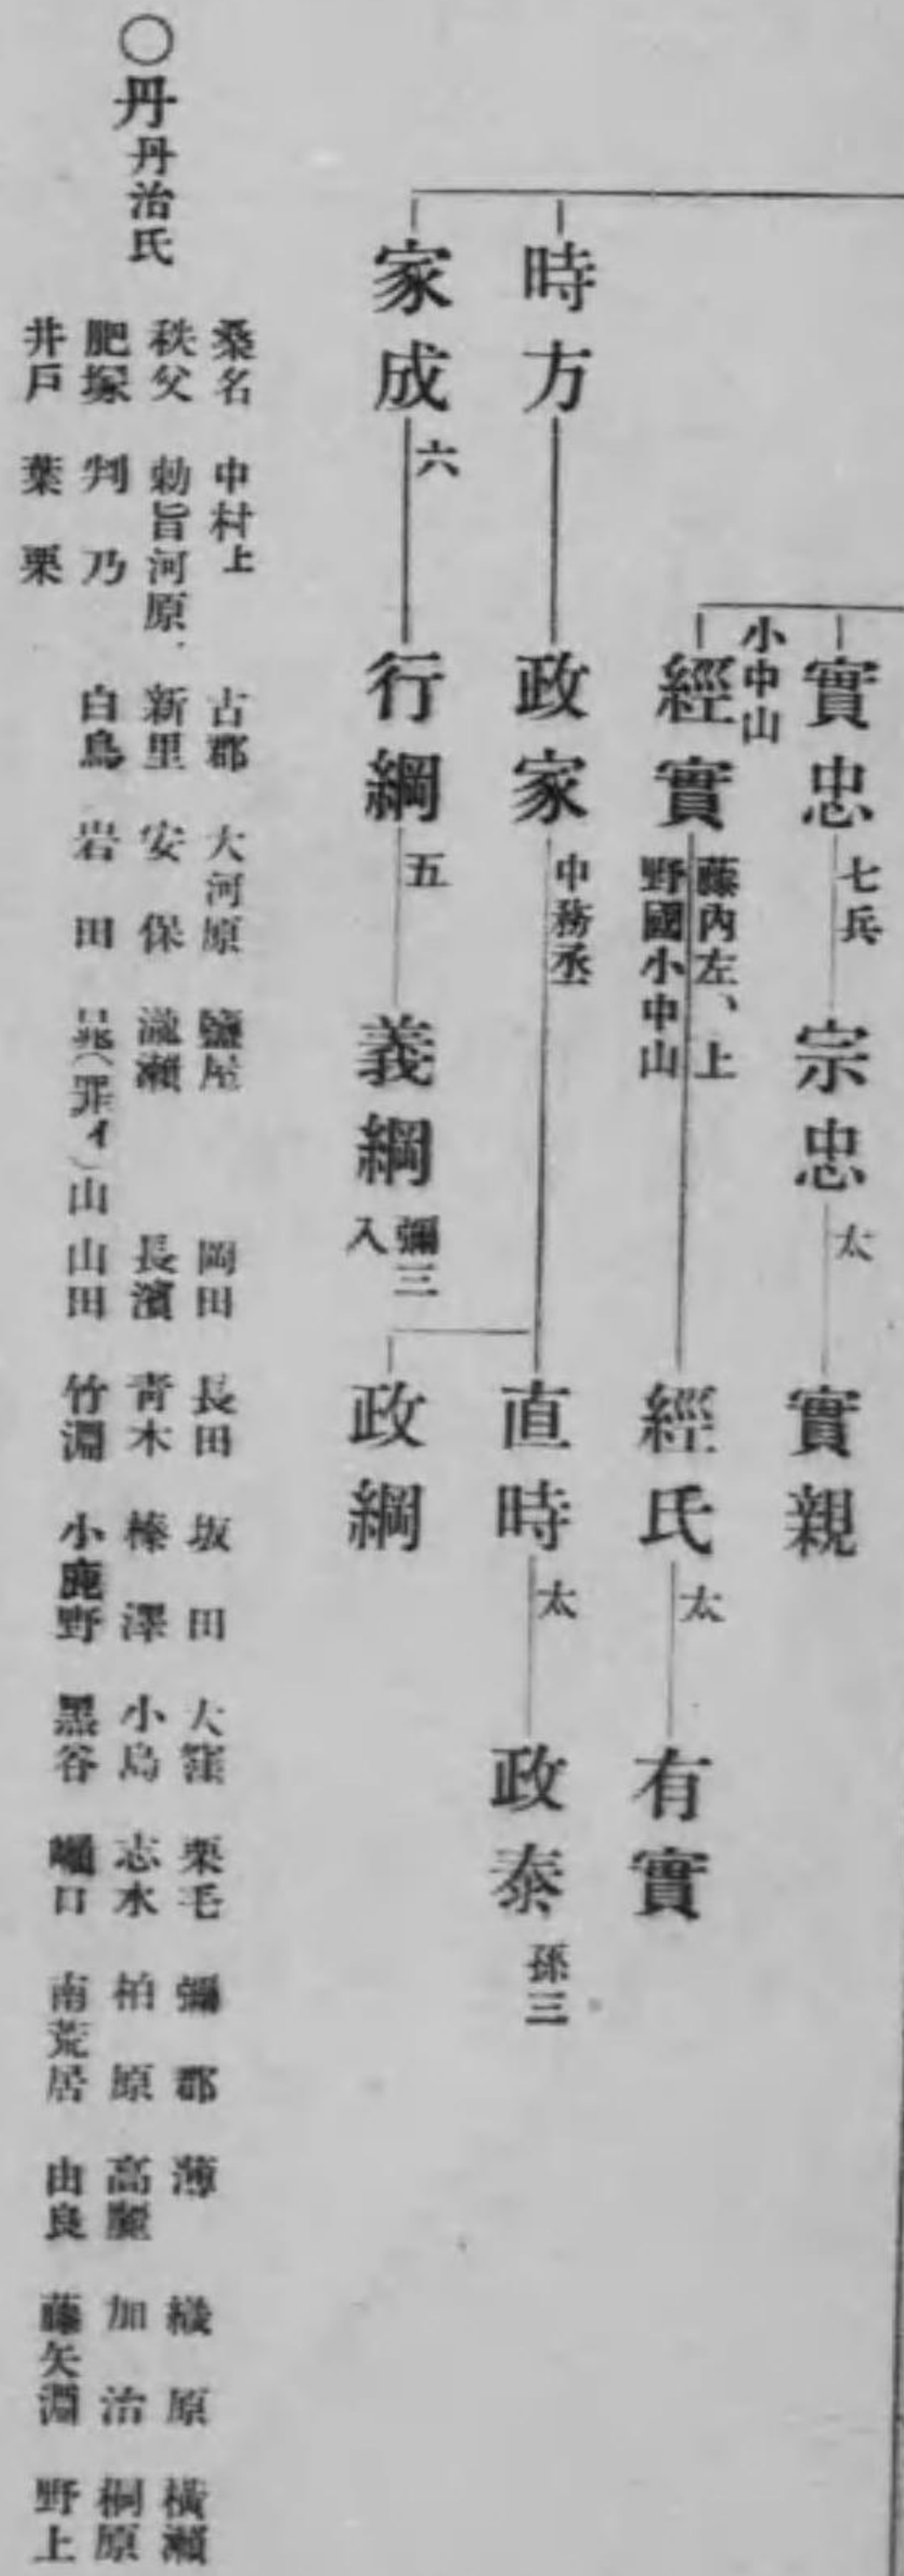 實忠 七兵 宗忠 太 實親
小中山
經實 藤內左、上野國小中山 經氏 太 有實
時方 政家 中務丞 直時 太 政泰 孫三
家成 六 行綱 五 義綱 彌三入 政綱
〇丹 丹治氏
桑名 中村上 古郡 大河原 鹽屋 岡田 長田 坂田 大窪 栗毛 彌郡 薄 織原 橫瀨
秩父 勅旨河原 新里 安保 瀧瀨 長濱 靑木 榛澤 小島 志水 柏原 高麗 加治 桐原
肥塚 判乃 白鳥 岩田 (罪イ)山 山田 竹淵 小鹿野 黑谷 口 南荒居 由良 藤矢淵 野上
井戶 葉栗